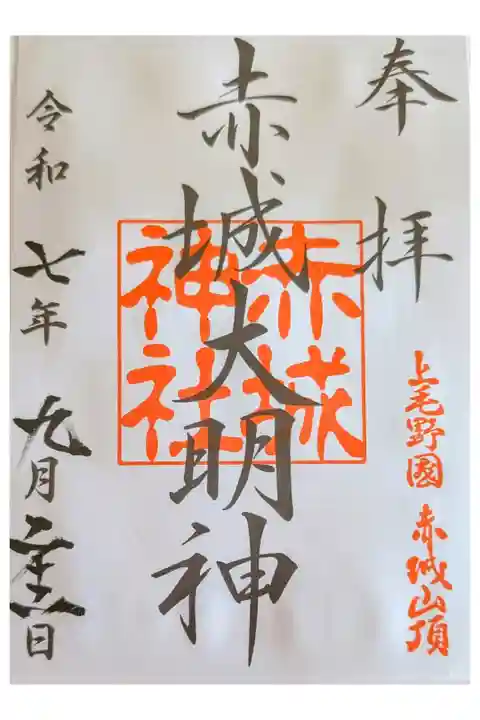 奉拝
上毛野國 赤城山頂
赤城大明神
赤城神社
令和七年九月二十六日